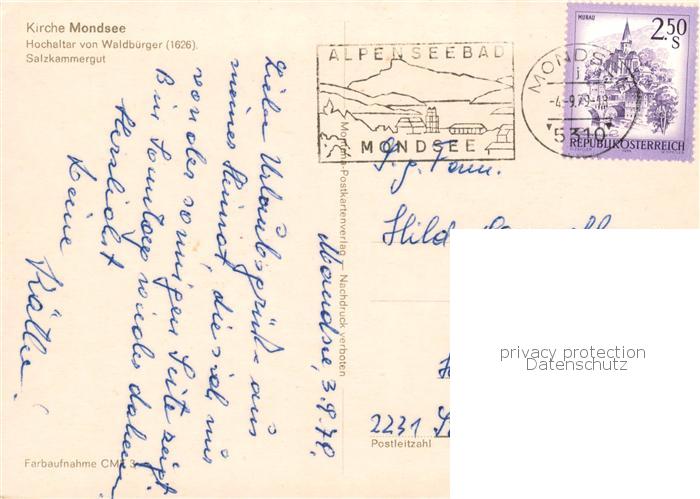 Kirche Mondsee
Hochaltar von Waldbürger (1626).
Salzkammergut
ALPENSEEBAD
MONDSEE
MONDSEE
-4.-9.79-18
5310
MURAU
2.50
S
REPUBLIK ÖSTERREICH
Mondsee, 3.9.
Liebe Urlaubsgrüße aus
meiner Heimat, die sich mir
von der sonnigen Seite zeigt
Bin Sonntags wieder daheim
Herzlichst
Deine
Käthe!
Postkartenverlag — Nachdruck verboten
Hilde
2231
Postleitzahl
Farbaufnahme
privacy protection
Datenschutz